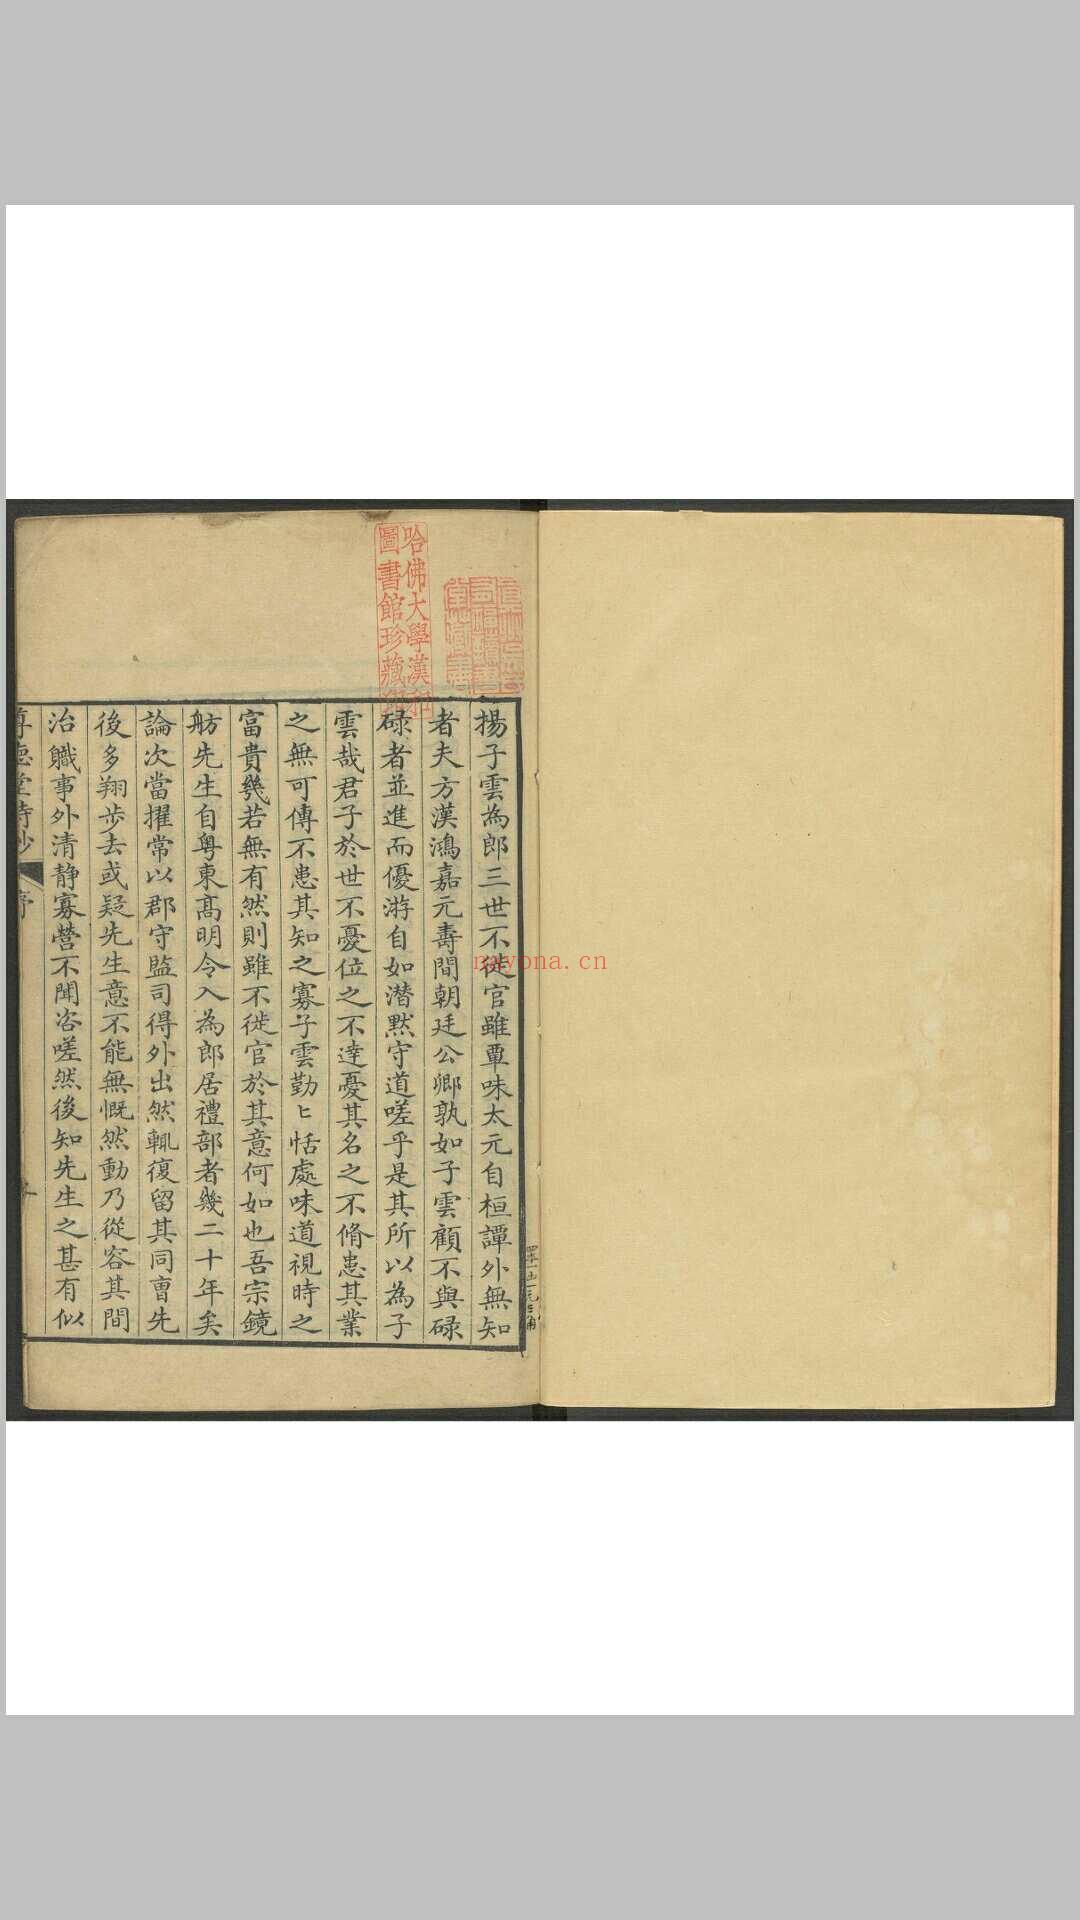 揚子雲為郎三世不徙官雖覃味太元自桓譚外無知
者夫方漢鴻嘉元壽間朝廷公卿孰如子雲顧不與碌
碌者並進而優游自如潛默守道嗟乎是其所以為子
雲哉君子於世不憂位之不達憂其名之不脩患其業
之無可傳不患其知之寡子雲勤〻恬處味道視時之
富貴幾若無有然則雖不徙官於其意何如也吾宗鏡
舫先生自粵東高明令入為郎居禮部者幾二十年矣
論次當擢常以郡守監司得外出然輒復留其同曹先
後多翔步去或疑先生意不能無慨然動乃從容其間
治職事外清靜寡營不聞咨嗟然後知先生之甚有似
尊德堂詩鈔
序
哈佛大學漢和
圖書館珍藏印
nayona.cn